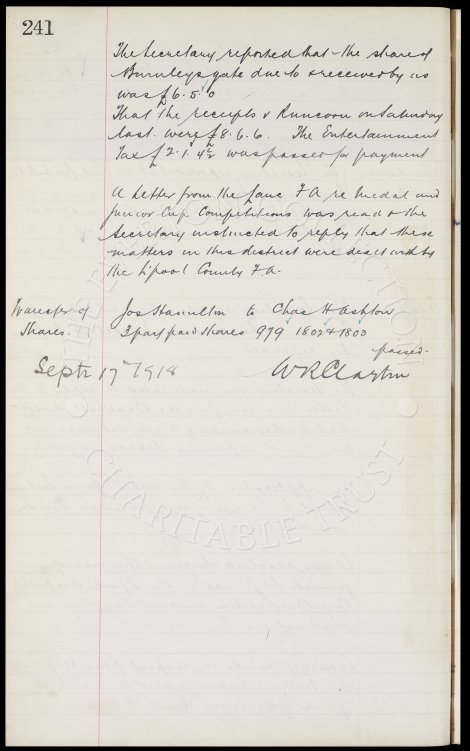 241
The Secretary reported that the share of
Burnleys gate due to & received by us
was £6.5.0
That the receipts v Runcorn on Saturday
last were £8.6.6. The Entertainment
Tax £2.1.4½ was passed for payment
A Letter from the Lanc F A re Medal and
Junior Cup Competitions was read & the
Secretary instructed to reply that these
matters in this district were dealt with by
the L'pool County F A.
Transfer of Jos Hamilton to Chas H Ashton
Shares. 3 part paid shares 979 1802 & 1800
passed.
Septr 17th 1918 W R Clayton
CHARITABLE TRUST